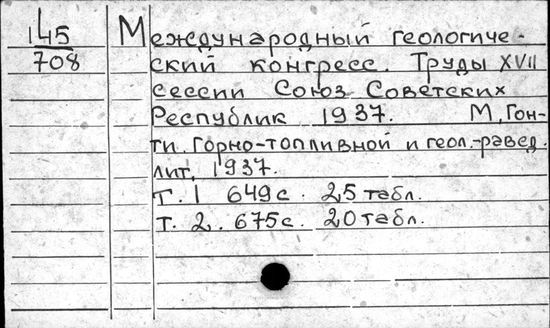 145
708
Международный геологиче-
ский конгресс. Труды XVII
сессии Союз Советских
Республик 1937. М, Гон-
ти. Горно-топливной и геол.-развед.
лит, 1937.
Т. 1 649 с. 25 табл.
т. 2. 675 с. 20 табл.